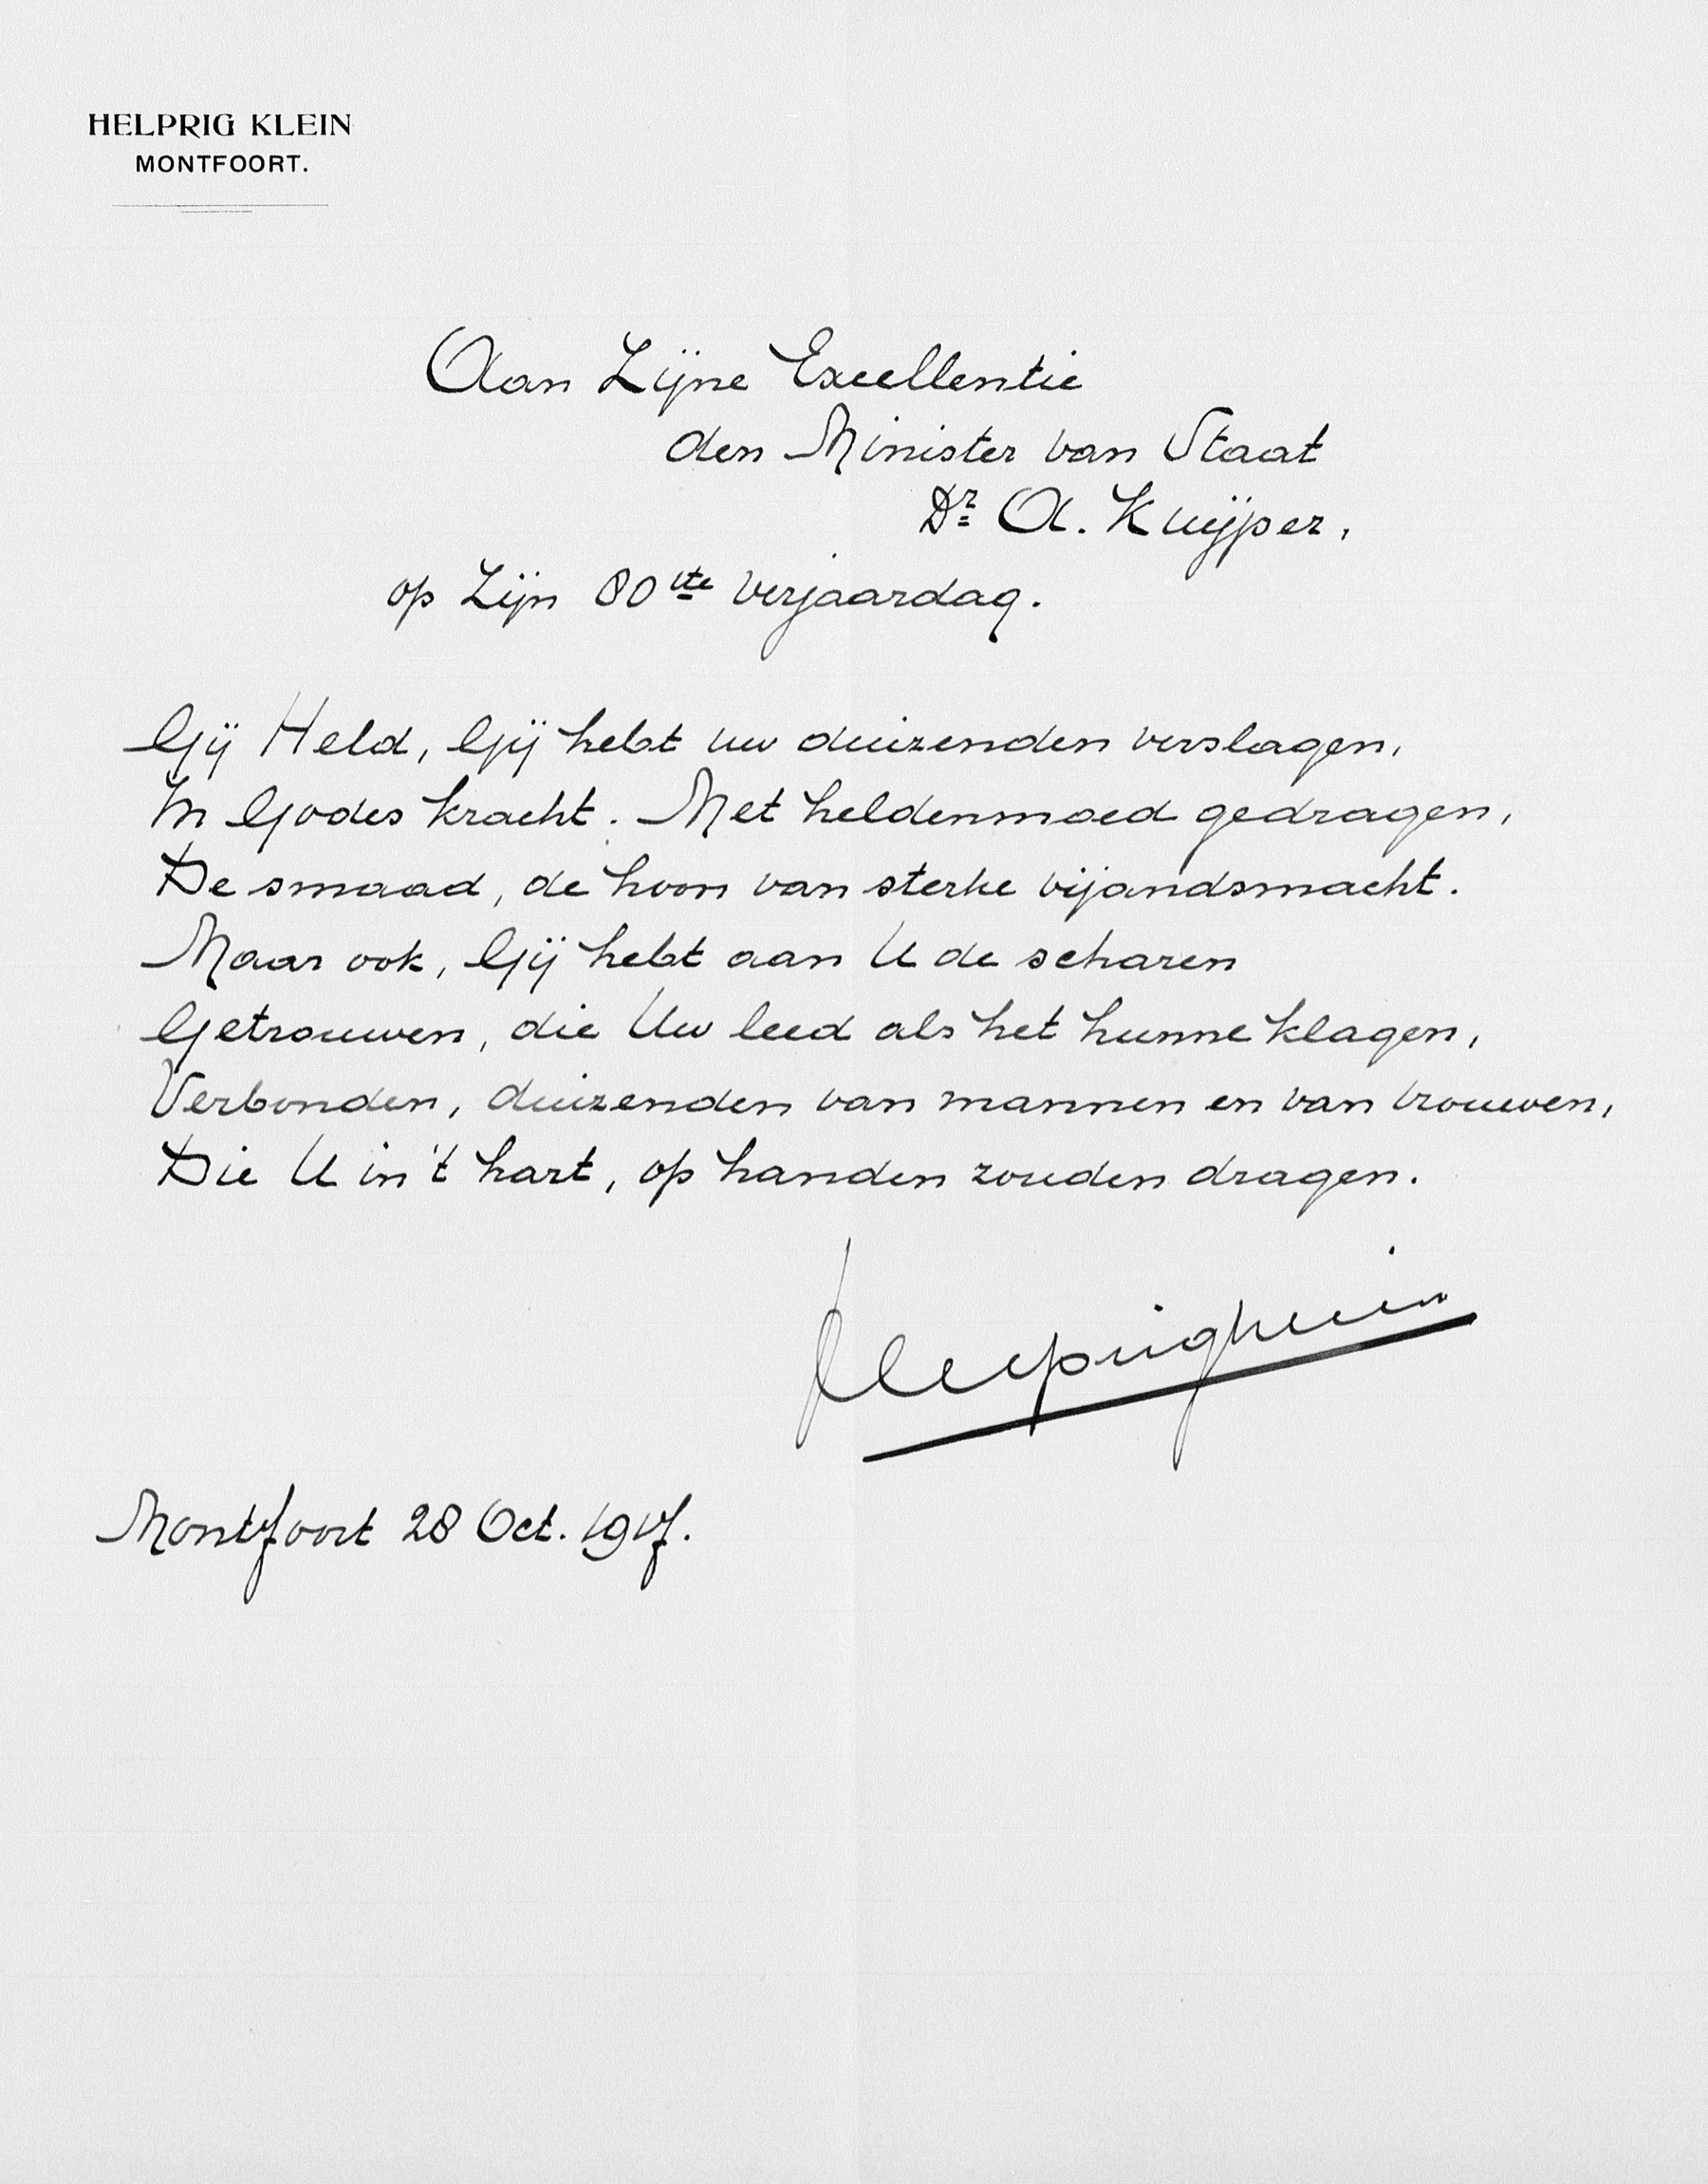 HELPRIG KLEIN
MONTFOORT.
Aan Zijne Excellentie
den Minister van Staat
Dr A. Kuÿper,
op Zijn 80ste verjaardag.
Gij Held, Gij hebt uw duizenden verslagen,
In Godes kracht. Met heldenmoed gedragen,
De smaad, de hoon van sterke vijandsmacht.
Maar ook, Gij hebt aan U de scharen
Getrouwen, die Uw leed als het hunne klagen,
Verbonden, duizenden van mannen en van vrouwen,
Die U in 't hart, op handen zouden dragen.
Helprig Klein
Montfoort 28 Oct. 1917.